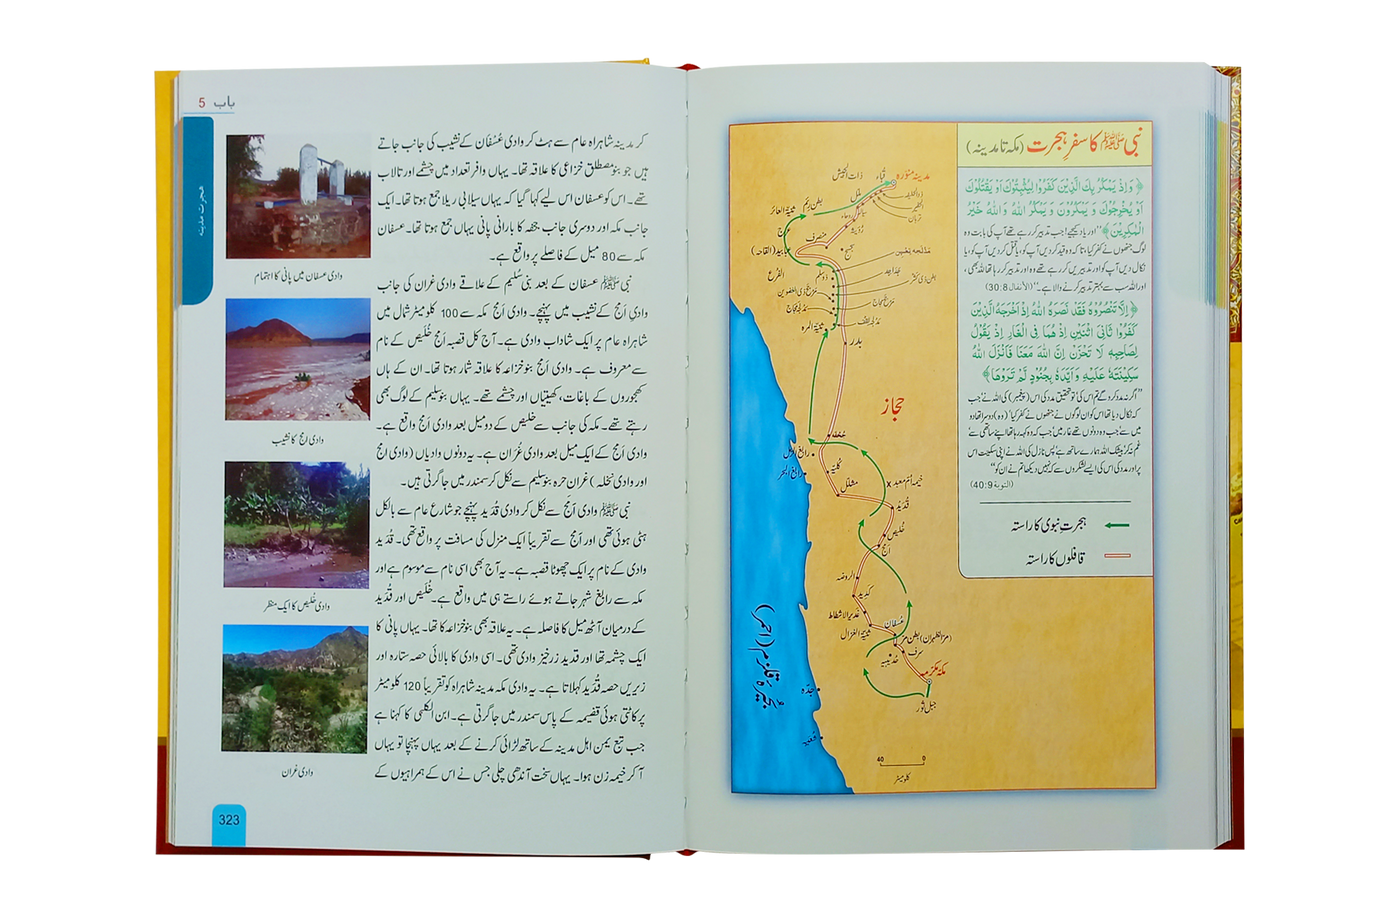 باب 5
ہجرت مدینہ
کر مدینہ شاہراہ عام سے ہٹ کر وادی عُسْفان کے نشیب کی جانب جاتے
ہیں جو بنو مصطلق خزاعی کا علاقہ تھا۔ یہاں وافر تعداد میں چشمے اور تالاب
تھے۔ اس کو عسفان اس لیے کہا گیا کہ یہاں سیلابی ریلا جمع ہوتا تھا۔ ایک
جانب مکہ اور دوسری جانب جحفہ کا بارانی پانی یہاں جمع ہوتا تھا۔ عسفان
مکہ سے 80 میل کے فاصلے پر واقع ہے۔
نبی ﷺ عسفان کے بعد بنی سُلیم کے علاقے وادی غران کی جانب
وادیِ امَج کے نشیب میں پہنچے۔ وادی اَمَج مکہ سے 100 کلومیٹر شمال میں
شاہراہ عام پر ایک شاداب وادی ہے۔ آج کل قصبہ اَمَج خُلَیص کے نام
سے معروف ہے۔ وادی اَمَج بنو خزاعہ کا علاقہ شمار ہوتا تھا۔ ان کے ہاں
کھجوروں کے باغات، کھیتیاں اور چشمے تھے۔ یہاں بنو سلیم کے لوگ بھی
رہتے تھے۔ مکہ کی جانب سے خلیص کے دو میل بعد وادی اَمَج واقع ہے۔
وادی اَمَج کے ایک میل بعد وادی غُرَان ہے۔ یہ دونوں وادیاں (وادی امج
اور وادی نخلہ) غران حرہ بنو سلیم سے نکل کر سمندر میں جا گرتی ہیں۔
نبی ﷺ وادی اَمَج سے نکل کر وادی قُدَید پہنچے جو شارع عام سے بالکل
ہٹی ہوئی تھی اور اَمَج سے تقریباً ایک منزل کی مسافت پر واقع تھی۔ قُدَید
وادی کے نام پر ایک چھوٹا قصبہ ہے۔ یہ آج بھی اسی نام سے موسوم ہے اور
مکہ سے رابغ شہر جاتے ہوئے راستے ہی میں واقع ہے۔ خُلَیص اور قُدَید
کے درمیان آٹھ میل کا فاصلہ ہے۔ یہ علاقہ بھی بنو خزاعہ کا تھا۔ یہاں پانی کا
ایک چشمہ تھا اور قدید زرخیز وادی تھی۔ اسی وادی کا بالائی حصہ ستارہ اور
زیریں حصہ قُدَید کہلاتا ہے۔ یہ وادی مکہ مدینہ شاہراہ کو تقریباً 120 کلومیٹر
پر کاٹتی ہوئی قضیمہ کے پاس سمندر میں جا گرتی ہے۔ ابن الکلبی کا کہنا ہے
جب تبع یمن اہل مدینہ کے ساتھ لڑائی کرنے کے بعد یہاں پہنچا تو یہاں
آ کر خیمہ زن ہوا۔ یہاں سخت آندھی چلی جس نے اس کے ہمراہیوں کے
وادی عسفان میں پانی کا اہتمام
وادی امج کا نشیب
وادی خُلیص کا ایک منظر
وادی غران
323
نبی ﷺ کا سفرِ ہجرت (مکہ تا مدینہ)
﴿ وَاِذْ يَمْكُرُ بِكَ الَّذِيْنَ كَفَرُوْا لِيُثْبِتُوْكَ اَوْ يَقْتُلُوْكَ
اَوْ يُخْرِجُوْكَ وَيَمْكُرُوْنَ وَيَمْكُرُ اللّٰهُ وَاللّٰهُ خَيْرُ
الْمٰكِرِيْنَ ﴾ "اور یاد کیجیے! جب تدبیر کر رہے تھے آپ کی بابت وہ
لوگ جنھوں نے کفر کیا، تاکہ وہ قید کر دیں آپ کو، یا قتل کر دیں آپ کو، یا
نکال دیں آپ کو اور تدبیریں کر رہے تھے وہ اور تدبیر کر رہا تھا اللہ بھی،
اور اللہ سب سے بہتر تدبیر کرنے والا ہے۔" (الأنفال 30:8)
﴿ اِلَّا تَنْصُرُوْهُ فَقَدْ نَصَرَهُ اللّٰهُ اِذْ اَخْرَجَهُ الَّذِيْنَ
كَفَرُوْا ثَانِيَ اثْنَيْنِ اِذْ هُمَا فِي الْغَارِ اِذْ يَقُوْلُ
لِصَاحِبِهٖ لَا تَحْزَنْ اِنَّ اللّٰهَ مَعَنَا فَاَنْزَلَ اللّٰهُ
سَكِيْنَتَهٗ عَلَيْهِ وَاَيَّدَهٗ بِجُنُوْدٍ لَّمْ تَرَوْهَا ﴾
"اگر نہ مدد کرو گے تم اس کی تو تحقیق مدد کی اس (پیغمبر) کی اللہ نے جب
کہ نکال دیا تھا اس کو ان لوگوں نے جنھوں نے کفر کیا (وہ) دوسرا تھا دو
میں سے جب وہ دونوں تھے غار میں جب کہ وہ کہہ رہا تھا اپنے ساتھی سے
غم نہ کر بیشک اللہ ہمارے ساتھ ہے پس نازل کی اللہ نے اپنی سکینت اس
پر اور مدد کی اس کی ایسے لشکروں سے کہ نہیں دیکھا تم نے ان کو"
(التوبة 40:9)
ہجرت نبوی کا راستہ
قافلوں کا راستہ
مدینہ منورہ
قُباء
ذات الجیش
بطن رِئم
ثنیۃ العائر
منصرف
الفرع
ثنیۃ المرہ
بدر
حجاز
جحفہ
رابغ البحر
کلیہ
مشلل
خیمہ اُم معبد
قُدَید
خُلیص
اَمَج
الروضہ
کدید
غدیر الاشطاط
ثنیۃ الغزال
عُسفان
(مر الظہران) بطن مر
سرف
حدیبیہ
مکہ مکرمہ
جبل ثور
جدّہ
بحیرہ قلزم (احمر)
40
0
کلومیٹر